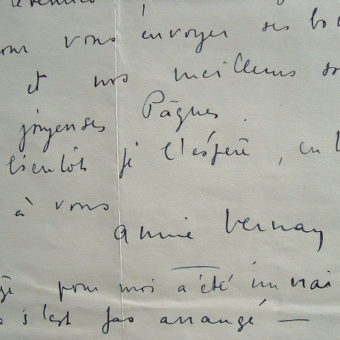 our vous envoyer ses bo
et nos meilleurs so
joyeuses Pâques.
bientôt je l'espère, en t
à vous
Annie Vernay
pour moi a été un vrai
s'est pas arrangé —